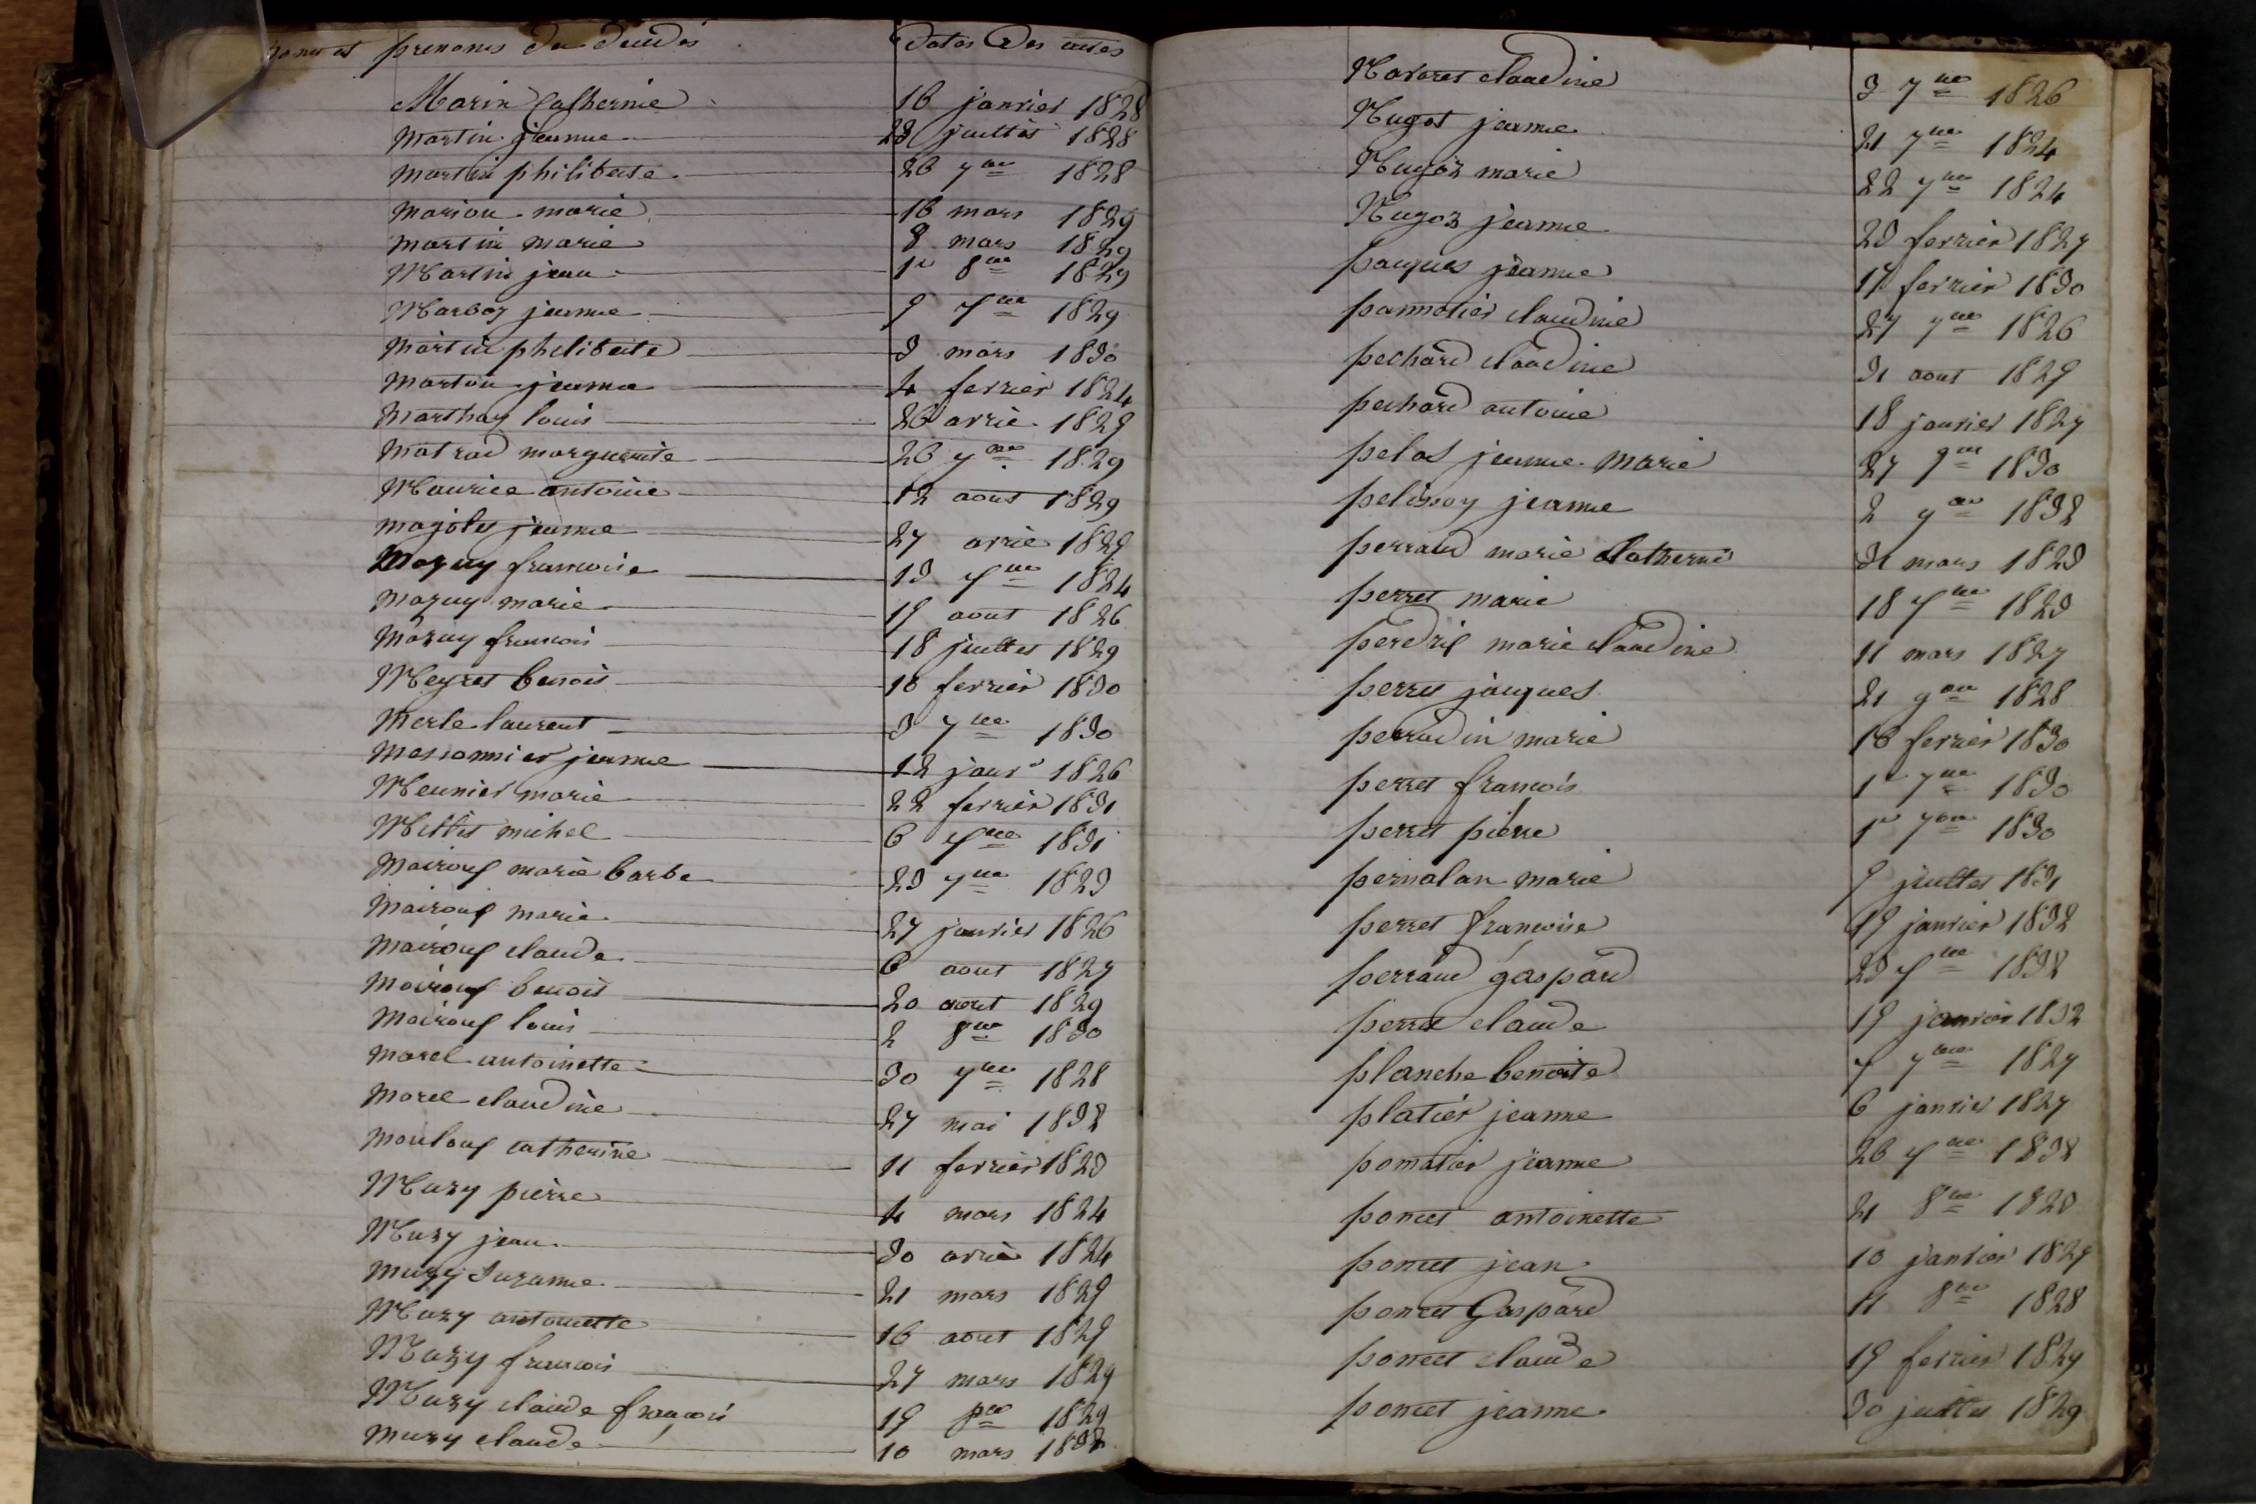 noms et prenoms des décédés Dates des actes
Marin Catherine 16 janvier 1828
Martin jeanne 23 juillet 1828
Martin philiberte 26 7bre 1828
Marion marie 16 mars 1829
Martin marie 8 mars 1829
Martin jean 1er 8bre 1829
Marboz jeanne 9 7bre 1829
Martin philiberte 3 mars 1830
Marton jeanne 4 fevrier 1824
Marthoy louis 26 avril 1829
Matrad marguerite 26 9bre 1829
Maurice antoine 12 aout 1829
majolet jeanne 27 avril 1829
Mazuy francoise 13 Xbre 1824
Mazuy marie 19 aout 1826
Mazuy francois 18 juillet 1829
Meyret benoit 16 fevrier 1830
Merle laurent 3 7bre 1830
Messonnier jeanne 12 janvr 1826
Meunier marie 22 fevrier 1831
Millet michel 6 Xbre 1831
Moiroux marie barbe 23 9bre 1823
Moiroux marie 27 janvier 1826
Moiroux claude 6 aout 1827
Moiroux benoit 20 aout 1829
Moiroux louis 2 8bre 1830
Morel antoinette 30 9bre 1828
Morel claudine 27 mai 1832
Mouloux catherine 11 fevrier 1823
Muzy pierre 4 mars 1824
Muzy jean 30 avril 1824
Muzy Suzanne 21 mars 1829
Muzy antoinette 16 aout 1829
Muzy francois 27 mars 1829
Muzy claude françois 19 8bre 1829
Muzy claude 10 mars 1832
Navaret claudine 3 7bre 1826
Nugot jeanne 21 7bre 1824
Nugoz marie 22 9bre 1824
Nugoz jeanne 23 fevrier 1827
paques jeanne 17 fevrier 1830
pannetier claudine 27 9bre 1826
pechard claudine 31 aout 1829
pechard antoine 18 janvier 1827
pelat jeanne marie 27 9bre 1830
pelissoy jeanne 2 9bre 1832
perraud marie Catherine 31 mars 1823
perret marie 18 Xbre 1823
perdrix marie claudine 11 mars 1827
perret jacques 21 9bre 1828
perradin marie 16 fevrier 1830
perret francois 1er 7bre 1830
perret pierre 1er 7bre 1830
pernalan marie 9 juillet 1831
perret francoise 19 janvier 1832
perraud gaspard 23 Xbre 1832
perret claude 19 janvier 1832
planche benoite 7 9bre 1827
platier jeanne 6 janvier 1827
pomatier jeanne 26 Xbre 1832
poncet antoinette 21 8bre 1823
poncet jean 10 janvier 1829
poncet Gaspard 11 8bre 1828
poncet claude 19 fevrier 1829
poncet jeanne 30 juillet 1829